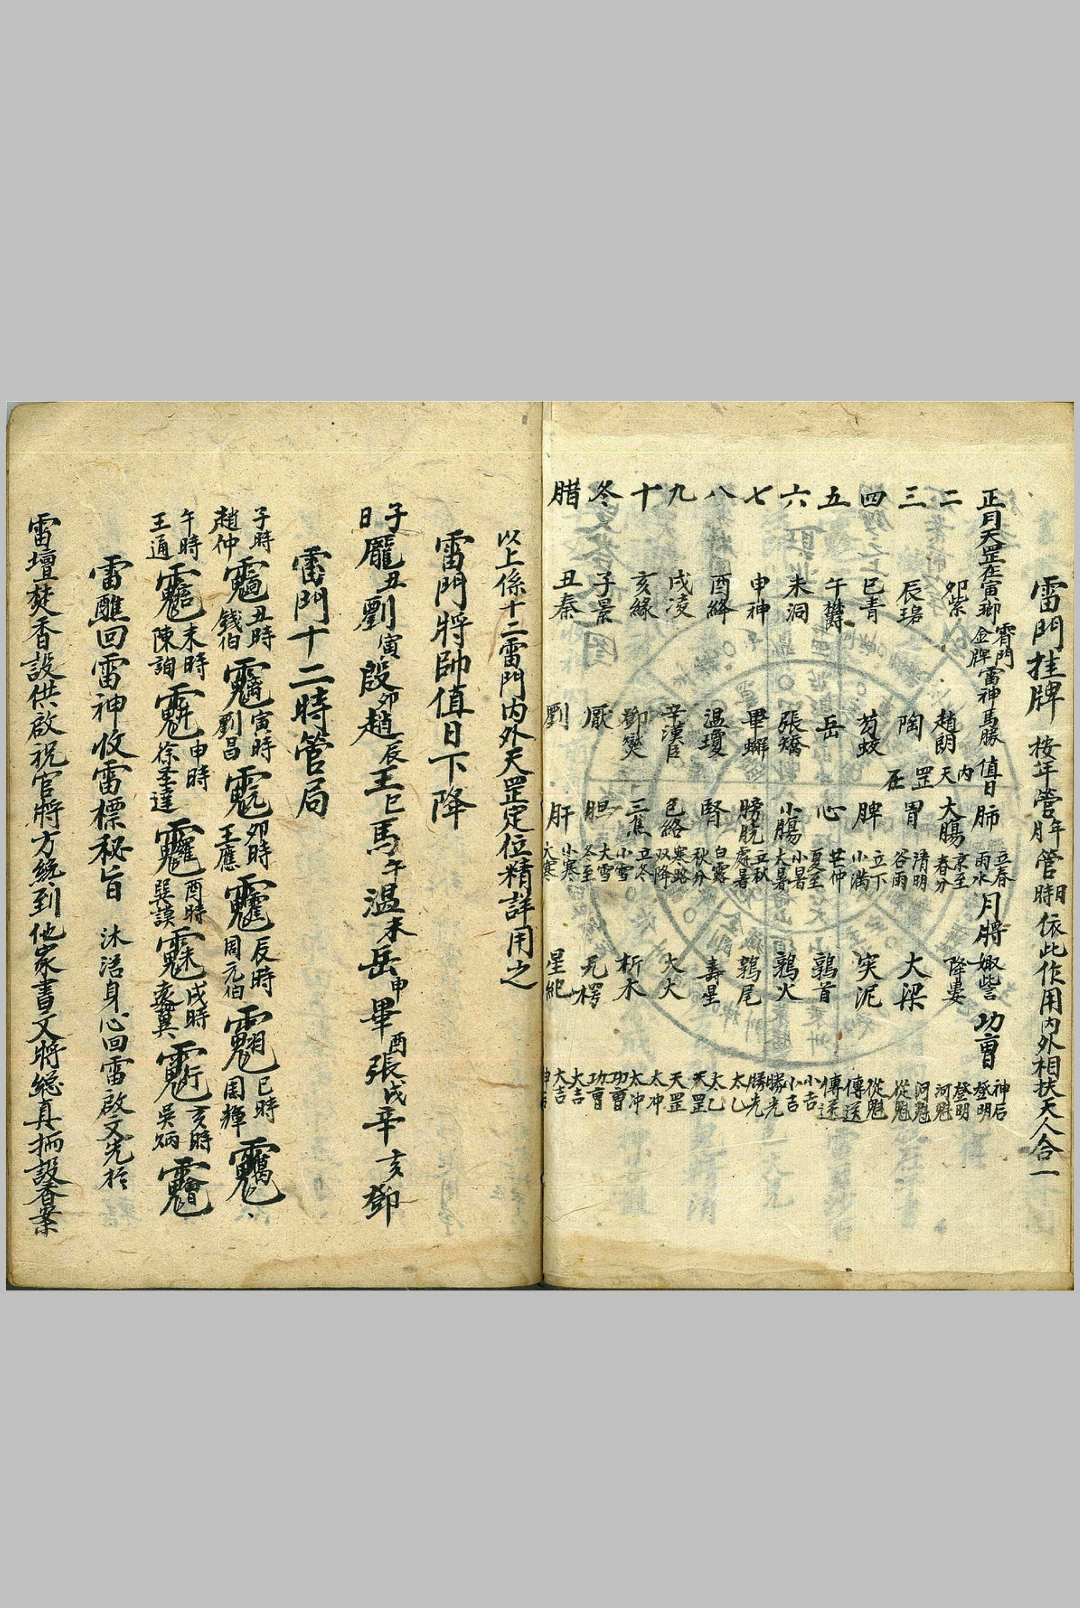 雷門挂牌 按年管年月管日時依此作用內外相扶天人合一
正月天罡在寅瑯 霄門金牌雷神馬勝 值日 肺 立春雨水 月將娵訾 功曹 神后登明
二 卯紫 趙朗 內天罡在 大腸 京至春分 降婁 登明河魁
三 辰珺 陶 胃 清明谷雨 大梁 河魁從魁
四 巳青 苟蛟 脾 立下小滿 突泥 從魁傳送
五 午欝 岳 心 芒仲夏至 鶉首 傳送小吉
六 未洞 張矯 小腸 小暑大暑 鶉火 小吉勝光
七 申神 畢 膀胱 立秋處暑 鶉尾 勝光太乙
八 酉絳 温瓊 腎 白露秋分 壽星 太乙天罡
九 戌凌 辛漢臣 包絡 寒路双降 大火 天罡太冲
十 亥緣 鄧燮 三焦 立冬小雪 析木 太冲功曹
冬 子景 厐 胆 大雪冬至 元枵 功曹大吉
腊 丑秦 劉 肝 小寒大寒 星紀 大吉
以上係十二雷門內外天罡定位精詳用之
雷門將帥值日下降
子日龐丑劉寅殷卯趙辰王巳馬午温未岳申畢酉張戌辛亥鄧
雷門十二時管局
子時趙仲 丑時錢伯 寅時劉昌 卯時王應 辰時周元伯 巳時周輝
午時王通 未時陳詢 申時徐圣達 酉時巽謨 戌時 亥時吳炳
雷醮回雷神收雷標秘旨 沐浴身心回雷啟文先於
雷壇焚香設供啟祝官將方統到他家書文將總真炳設香案